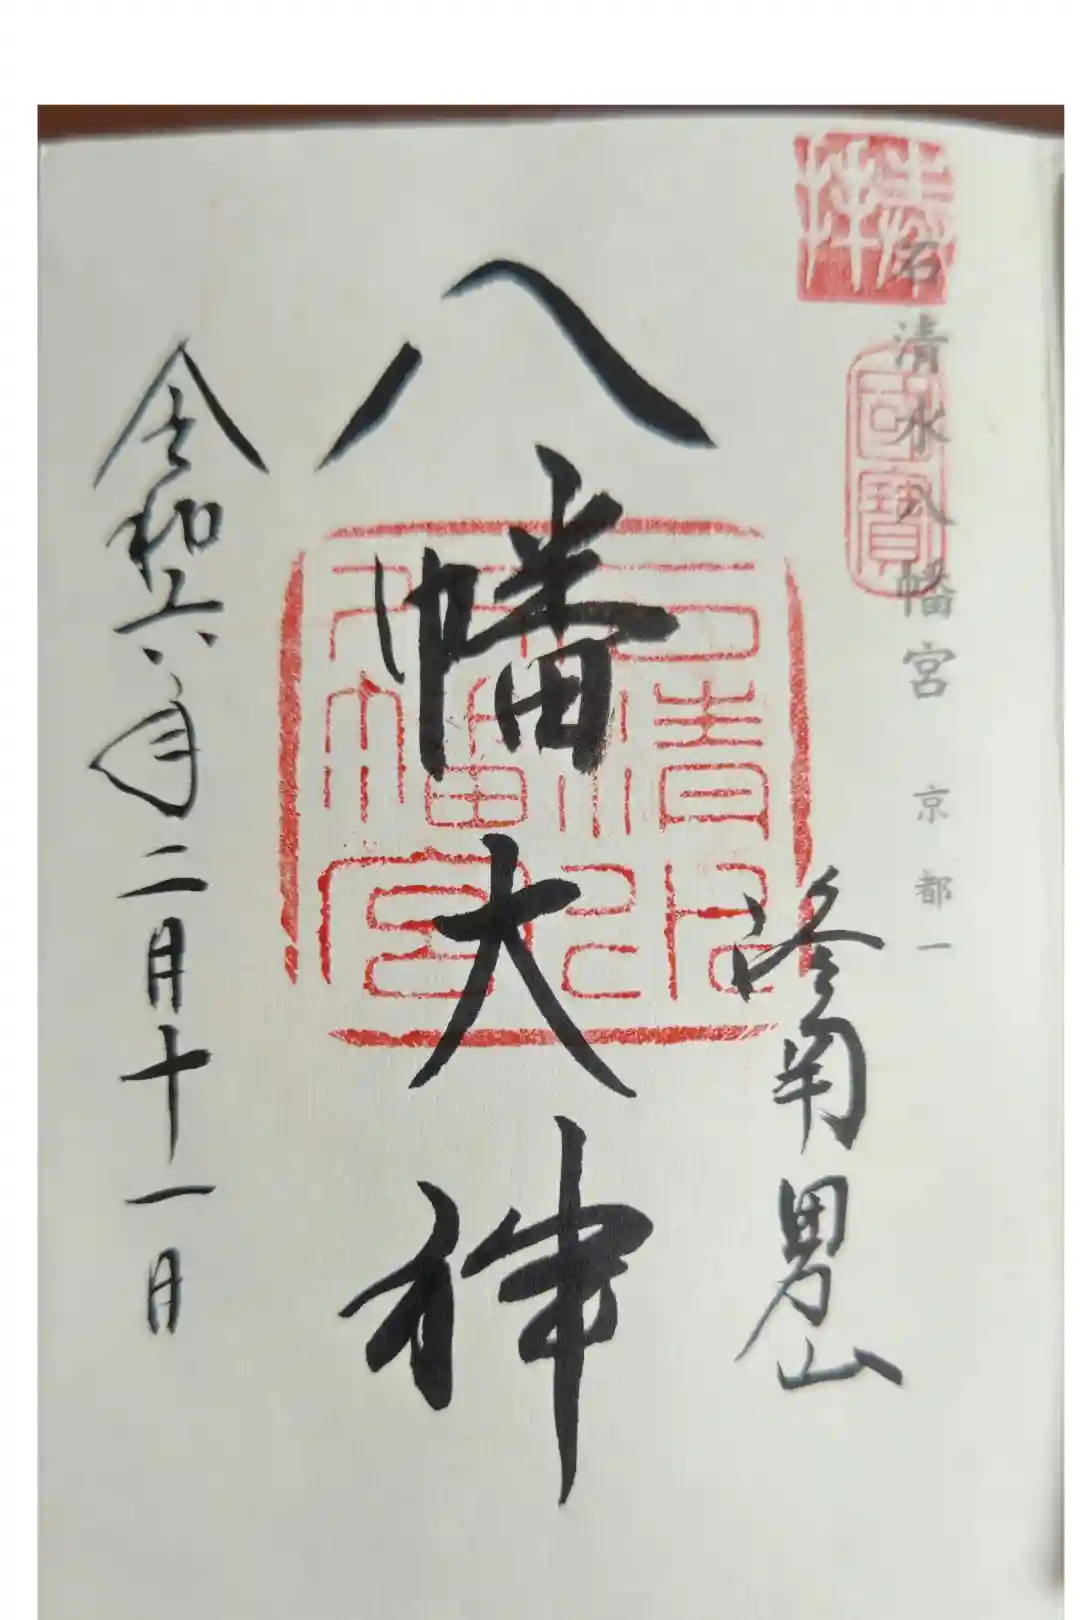 奉拝
石清水八幡宮 京都一
國寶
洛南男山
八幡大神
石清水八幡宮
令和六年二月十一日